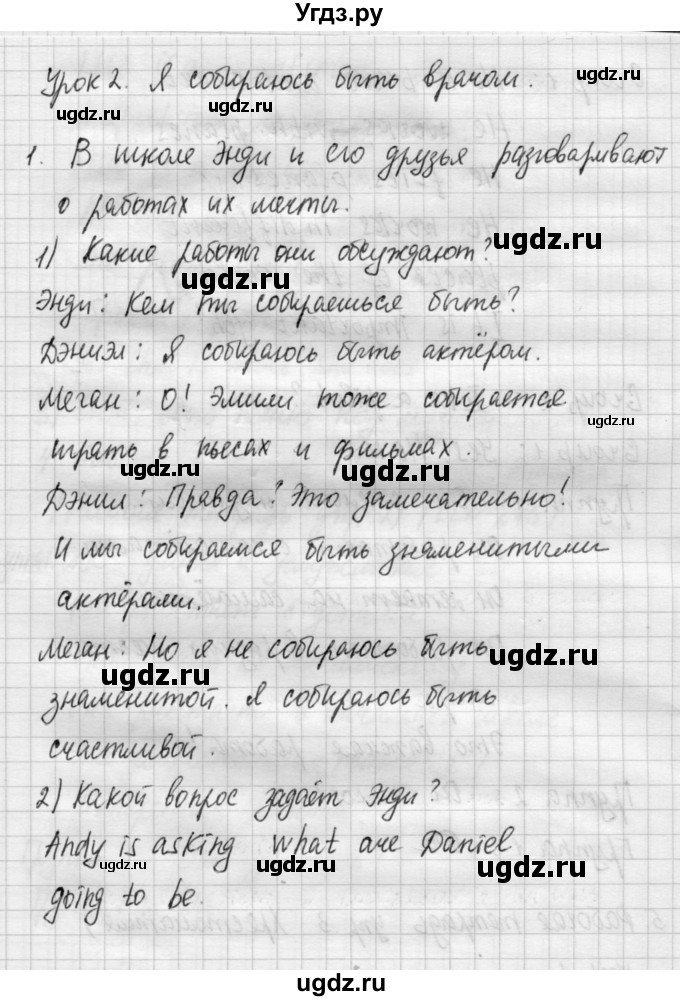 Угдз.ру
Урок 2. Я собираюсь быть врачом.
ugdz.ru ugdz.ru
1. В школе Энди и его друзья разговаривают
ugdz.ru
о работах их мечты.
ugdz.ru
1) Какие работы они обсуждают?
ugdz.ru
Энди: Кем ты собираешься быть?
Дэниэл: Я собираюсь быть актёром.
ugdz.ru ugdz.ru
Меган: О! Эмили тоже собирается
ugdz.ru
играть в пьесах и фильмах.
ugdz.ru ugdz.ru
Дэнил: Правда? Это замечательно!
И мы собираемся быть знаменитыми
актёрами.
Меган: Но я не собираюсь быть
ugdz.ru ugdz.ru
знаменитой. Я собираюсь быть
счастливой.
2) Какой вопрос задаёт Энди?
Andy is asking what are Daniel
ugdz.ru ugdz.ru
going to be.
ugdz.ru
ugdz.ru